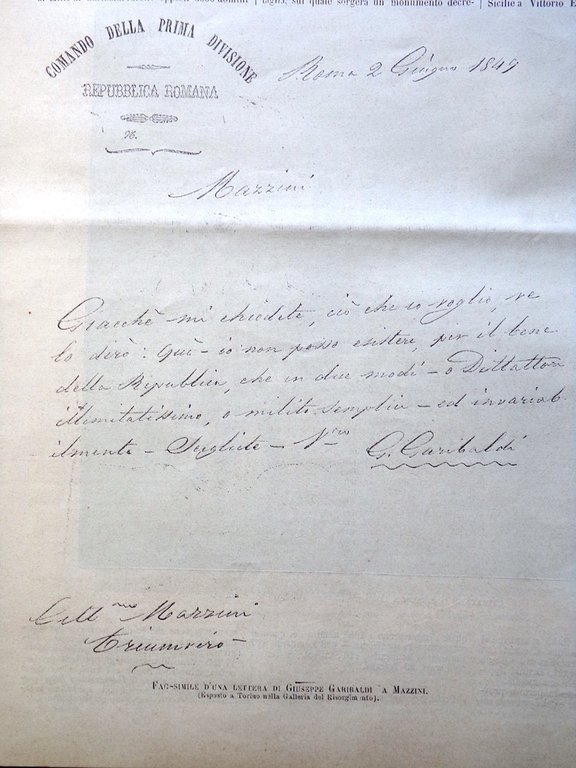 taglia, sul quale sorgerà un monumento decre-
Sicilie a Vittorio E
COMANDO DELLA PRIMA DIVISIONE
REPUBBLICA ROMANA
N.
Roma 2 Giugno 1849
Mazzini
Giacchè mi chiedete, ciò che io voglio, ve
lo dirò: Quì - io non posso esistere, per il bene
della Republica, che in due modi - o Dittattore
illimitatissimo, o milite semplice - ed invariab
ilmente - Scegliete - V.ro
G. Garibaldi
Mazzini
Triumviro
FAC-SIMILE D'UNA LETTERA DI GIUSEPPE GARIBALDI A MAZZINI.
(Esposto a Torino nella Galleria del Risorgimento).